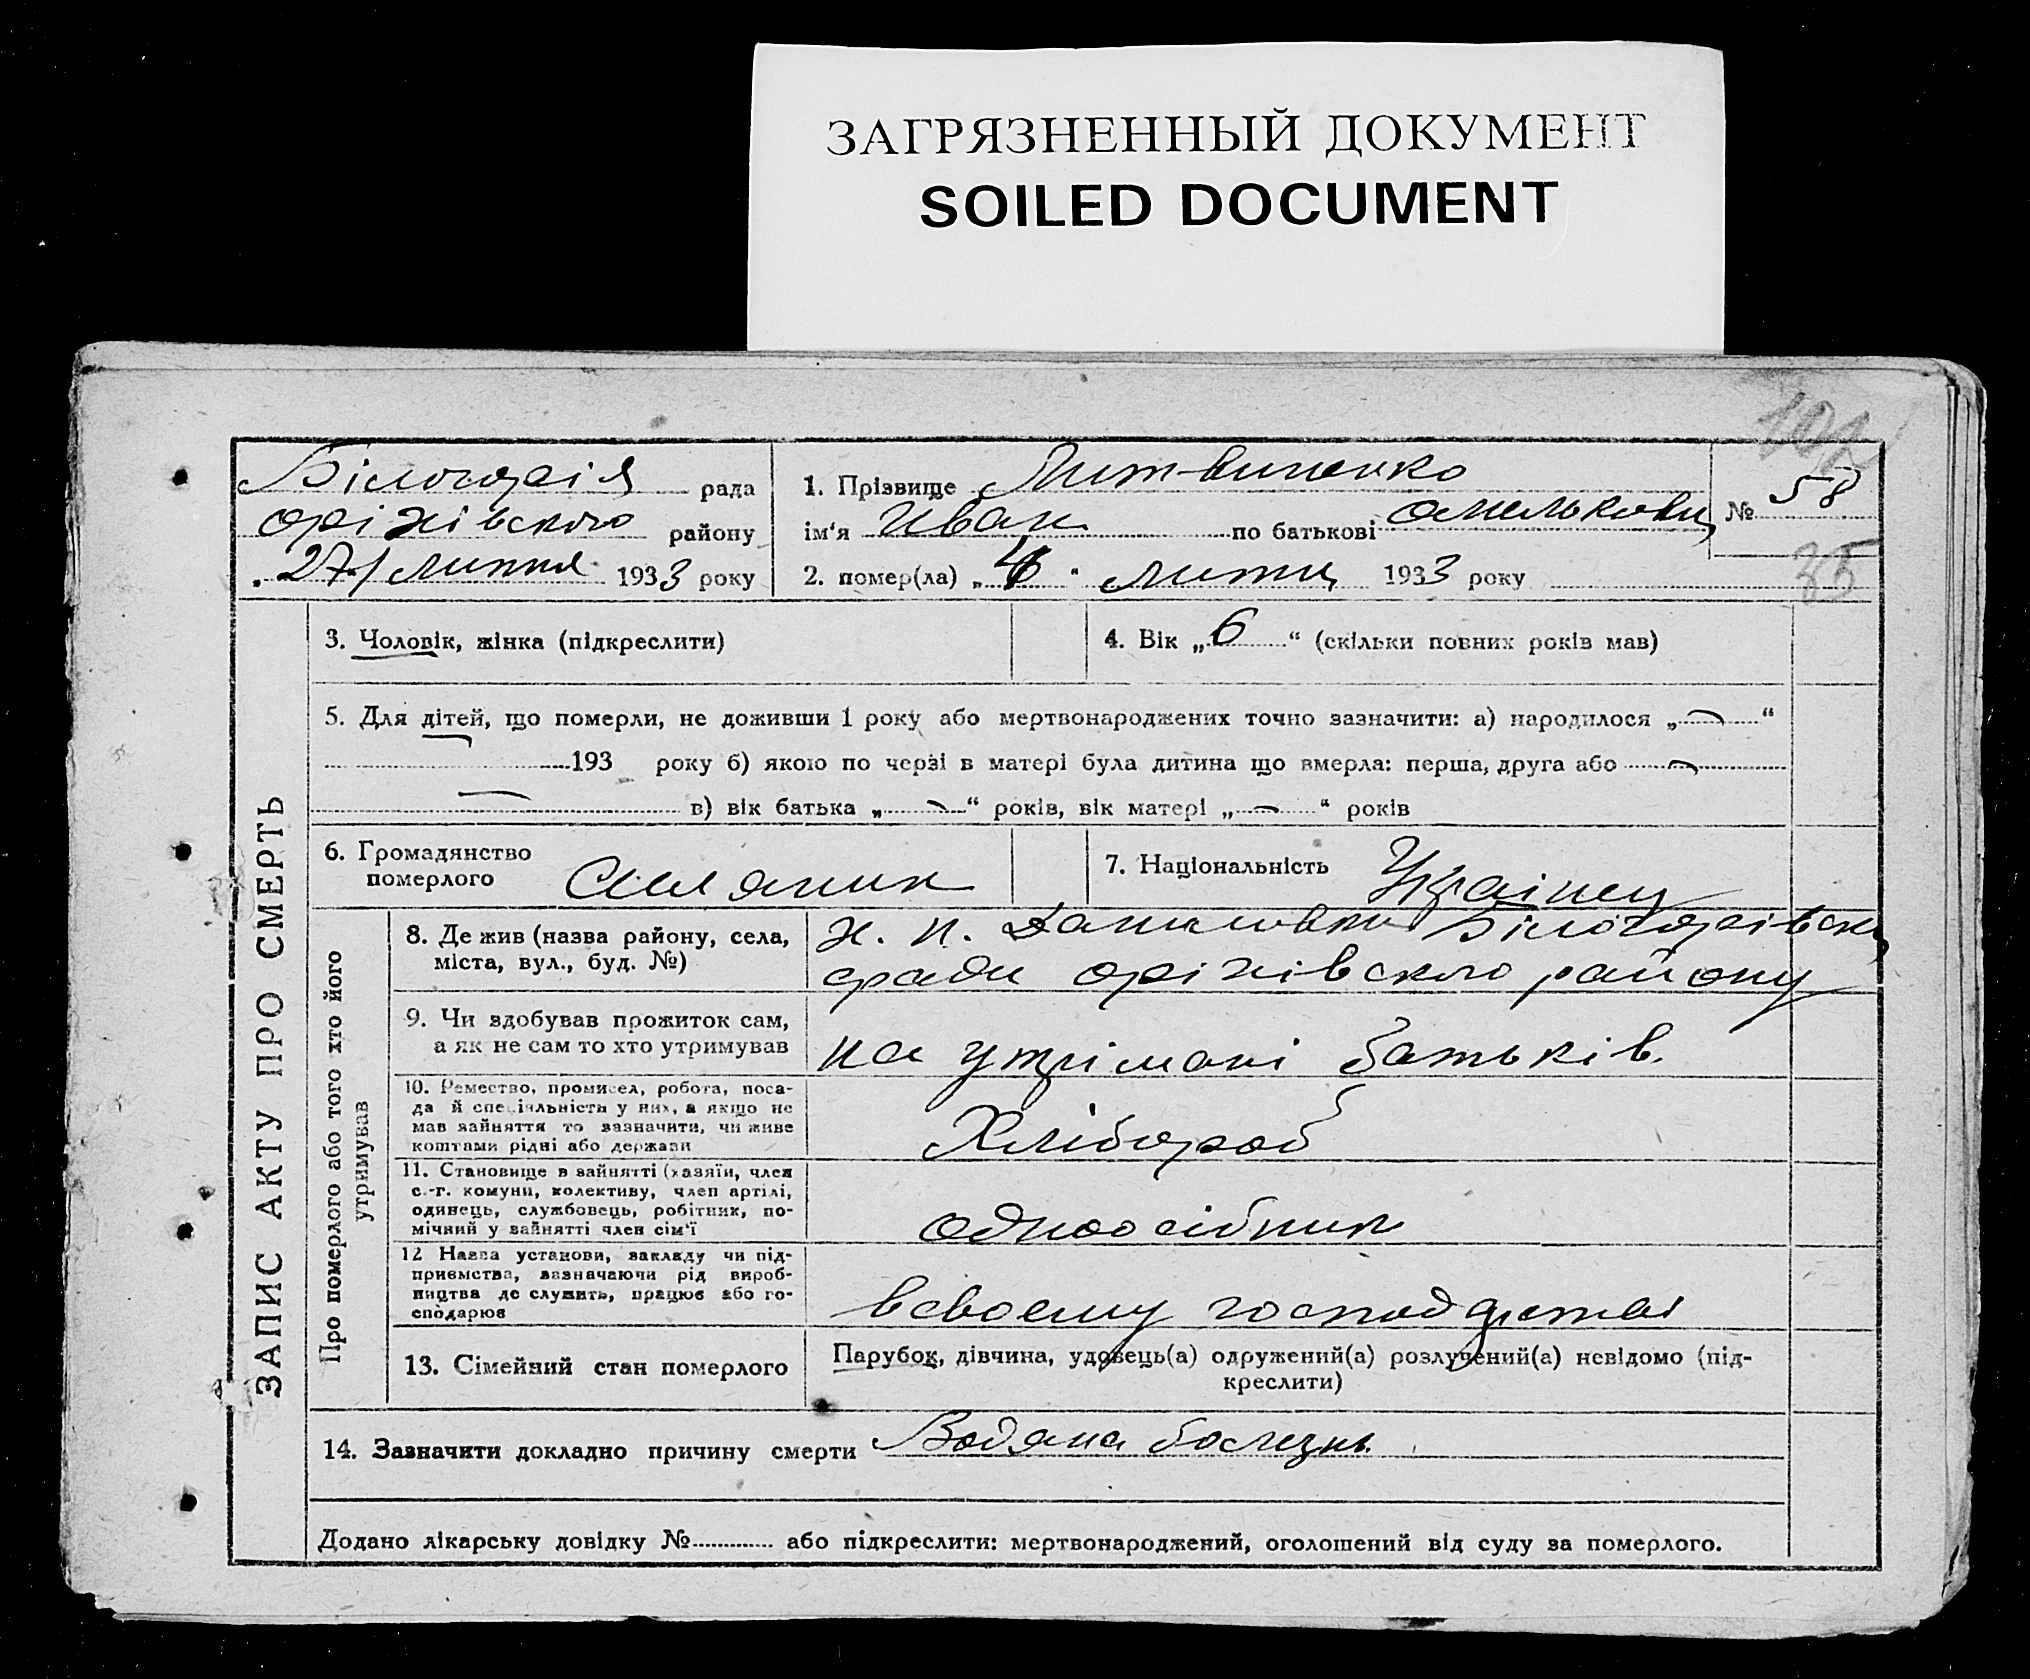 ЗАГРЯЗНЕННЫЙ ДОКУМЕНТ
SOILED DOCUMENT
рада
оріхівского району
27/ липня 1933 року
1. Прізвище Литвиненко
ім'я Иван по батькові
2. помер(ла) „4“ 1933 року
№ 58
35
ЗАПИС АКТУ ПРО СМЕРТЬ
3. Чоловік, жінка (підкреслити)
4. Вік „6“ (скільки повних років мав)
5. Для дітей, що померли, не доживши 1 року або мертвонароджених точно зазначити: а) народилося „—“
193 року б) якою по черзі в матері була дитина що вмерла: перша, друга або —
— в) вік батька „—“ років, вік матері „—“ років
6. Громадянство
померлого Селяник
7. Національність Українец
Про померлого або того хто його
утримував
8. Де жив (назва району, села,
міста, вул., буд. №)
х. н. Даниловка
ради оріхівского району
9. Чи здобував прожиток сам,
а як не сам то хто утримував
на утрімані батьків.
10. Ремество, промисел, робота, поса-
да й спеціяльність у них, а якщо не
мав зайняття то зазначити, чи живе
коштами рідні або держави
Хлібороб
11. Становище в зайнятті (хазяїн, член
с.-г. комуни, колективу, член артілі,
одинець, службовець, робітник, по-
мічний у зайнятті член сім'ї
одноосібник
12 Назва установи, закладу чи під-
приємства, зазначаючи рід вироб-
ництва де служить, працює або го-
сподарює
всвоему
13. Сімейний стан померлого
Парубок, дівчина, удовець(а) одружений(а) розлучений(а) невідомо (під-
креслити)
14. Зазначити докладно причину смерти Водяна болезнь.
Додано лікарську довідку № або підкреслити: мертвонароджений, оголошений від суду за померлого.